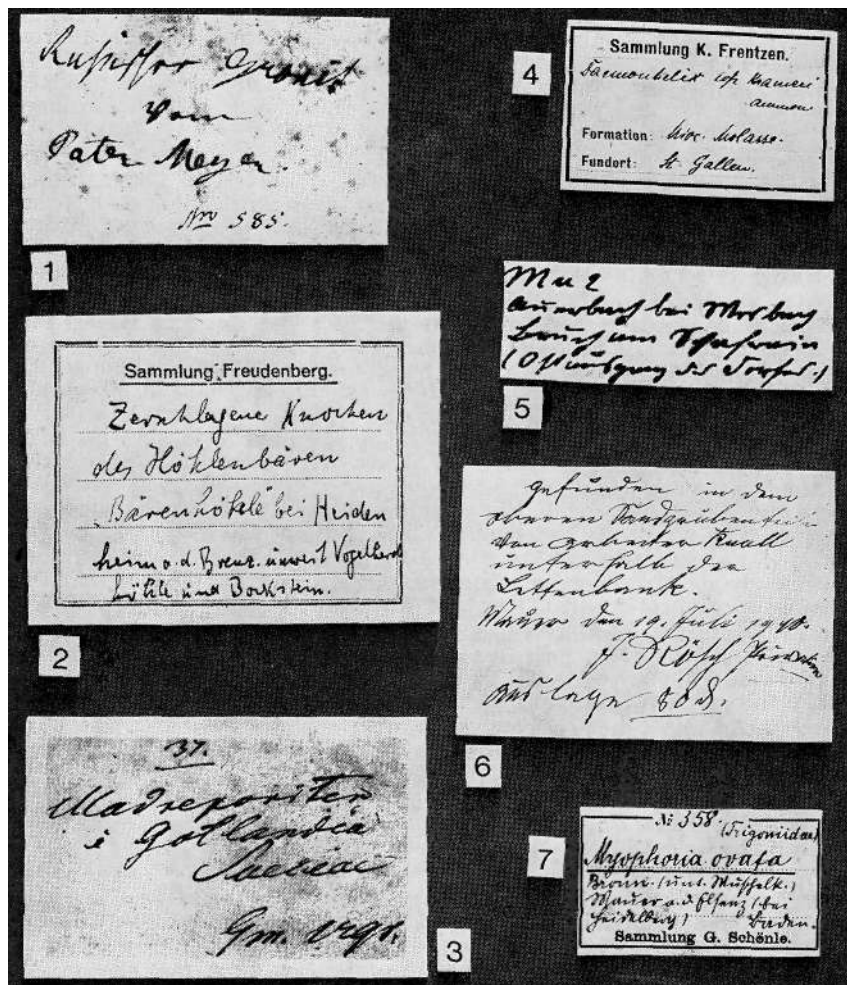 Russischer Granit
vom
Pater Meyer.
No 585.
1
Sammlung Freudenberg.
Zerschlagene Knochen
des Höhlenbären
Bärenhöhle bei Heiden
heim a. d. Brenz. unweit Vogelherd
höhle und Bockstein.
2
37.
Madreporiter
è Gotlandia
Sueciae
3
4
Sammlung K. Frentzen.
Daemonhelix cfr Krameri
Ammon
Formation: Mioc. Molasse.
Fundort: St. Gallen.
Mu 2
Auerbach bei Mosbach
Bruch am Schafrain
(Ostausgang des Dorfes.)
5
gefunden in dem
oberen
von Arbeiter Knall
unterhalb der
Lettenbank.
Mauer den 19. Juli
J. Rösch
Auslage 80 d.
6
7
№ 358. (Trigoniidae)
Myophoria ovata
Bronn. (unt. Muschelk.)
Mauer a. d. Elsenz (bei
Heidelberg) Baden.
Sammlung G. Schönle.